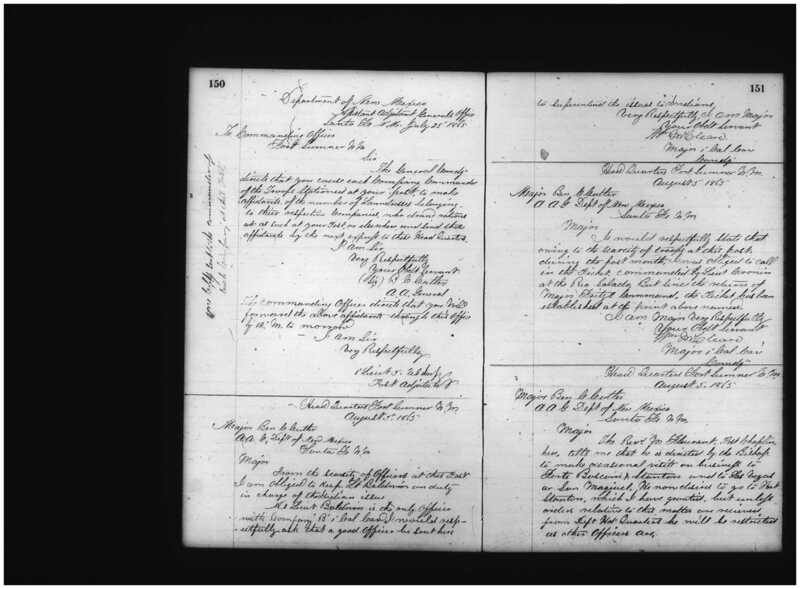 150
Department of New Mexico
Assistant Adjutant Generals Office
Santa Fe N.M. July 25" 1865
To Commanding Officer
Fort Sumner N.M.
Sir
The General Comdg
directs that you cause each Company Commander
of the Troops Stationed at your Post to make
affidavits of the number of Laundresses belonging
to their respective Companies who draw rations
as such at your Post or elsewhere and send these
affidavits by the next express to these Head Quarters.
I am Sir
Very Respectfully
Your Obdt Servant
B. C. Cutler
A.A. General
The commanding Officer directs that you will
forward the above affidavits through this Office
by 12 M. to morrow
I am Sir
Very Respectfully
1" Lieut 5"
Post Adjutant
Head Quarters Fort Sumner N.M.
August 5" 1865
Major Ben C. Cutler
A.A.G. Dept of New Mexico
Santa Fe N.M.
Major
From the scarcity of Officers at this Post
I am obliged to keep Lt Baldwin on duty
in charge of the Indian issue
As Lieut Baldwin is the only Officer
with Company "B" 1" Cal Cav I would resp-
ectfully ask that a good Officer be sent here
151
to superintend the issues to Indians
Very Respectfully I am Major
Your Obdt Servant
Wm McCleave
Major 1" Cal Cav
Comdg
Head Quarters Fort Sumner N.M.
August 5" 1865
Major Ben C. Cutler
A.A.G. Dept of New Mexico
Santa Fe N.M.
Major
I would respectfully state that
owing to the scarcity of cavalry at this post
during the past month, I was obliged to call
in the Picket commanded by Lieut
at the Rio Salado, But since the return of
Major Command, the Picket has been
established at the point above named.
I am Major Very Respectfully
Your Obdt Servant
Wm McCleave
Major 1" Cal Cav
Comdg
Head Quarters Fort Sumner N.M.
August 5" 1865
Major Ben C. Cutler
A.A.G. Dept of New Mexico
Santa Fe N.M.
Major
The Revd Post Chaplain
here, tells me that he is directed by the Bishop
to make occasional visits on business to
Forts Bascom & Stanton and to Las Vegas
or San Maguel, He now desires to go to Fort
Stanton, which I have granted, but unless
orders relative to this matter are received
from Dept Hd Quarters he will be restricted
as other Officers are.